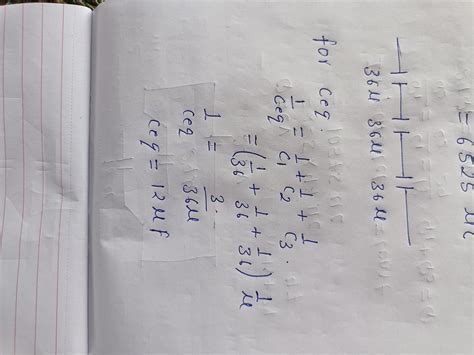 = 6525 μ
36μ 36μ 36μ
for Ceq.
1/Ceq = 1/C1 + 1/C2 + 1/C3.
= (1/36 + 1/36 + 1/36) 1/μ
1/Ceq = 3/36μ
Ceq = 12μf